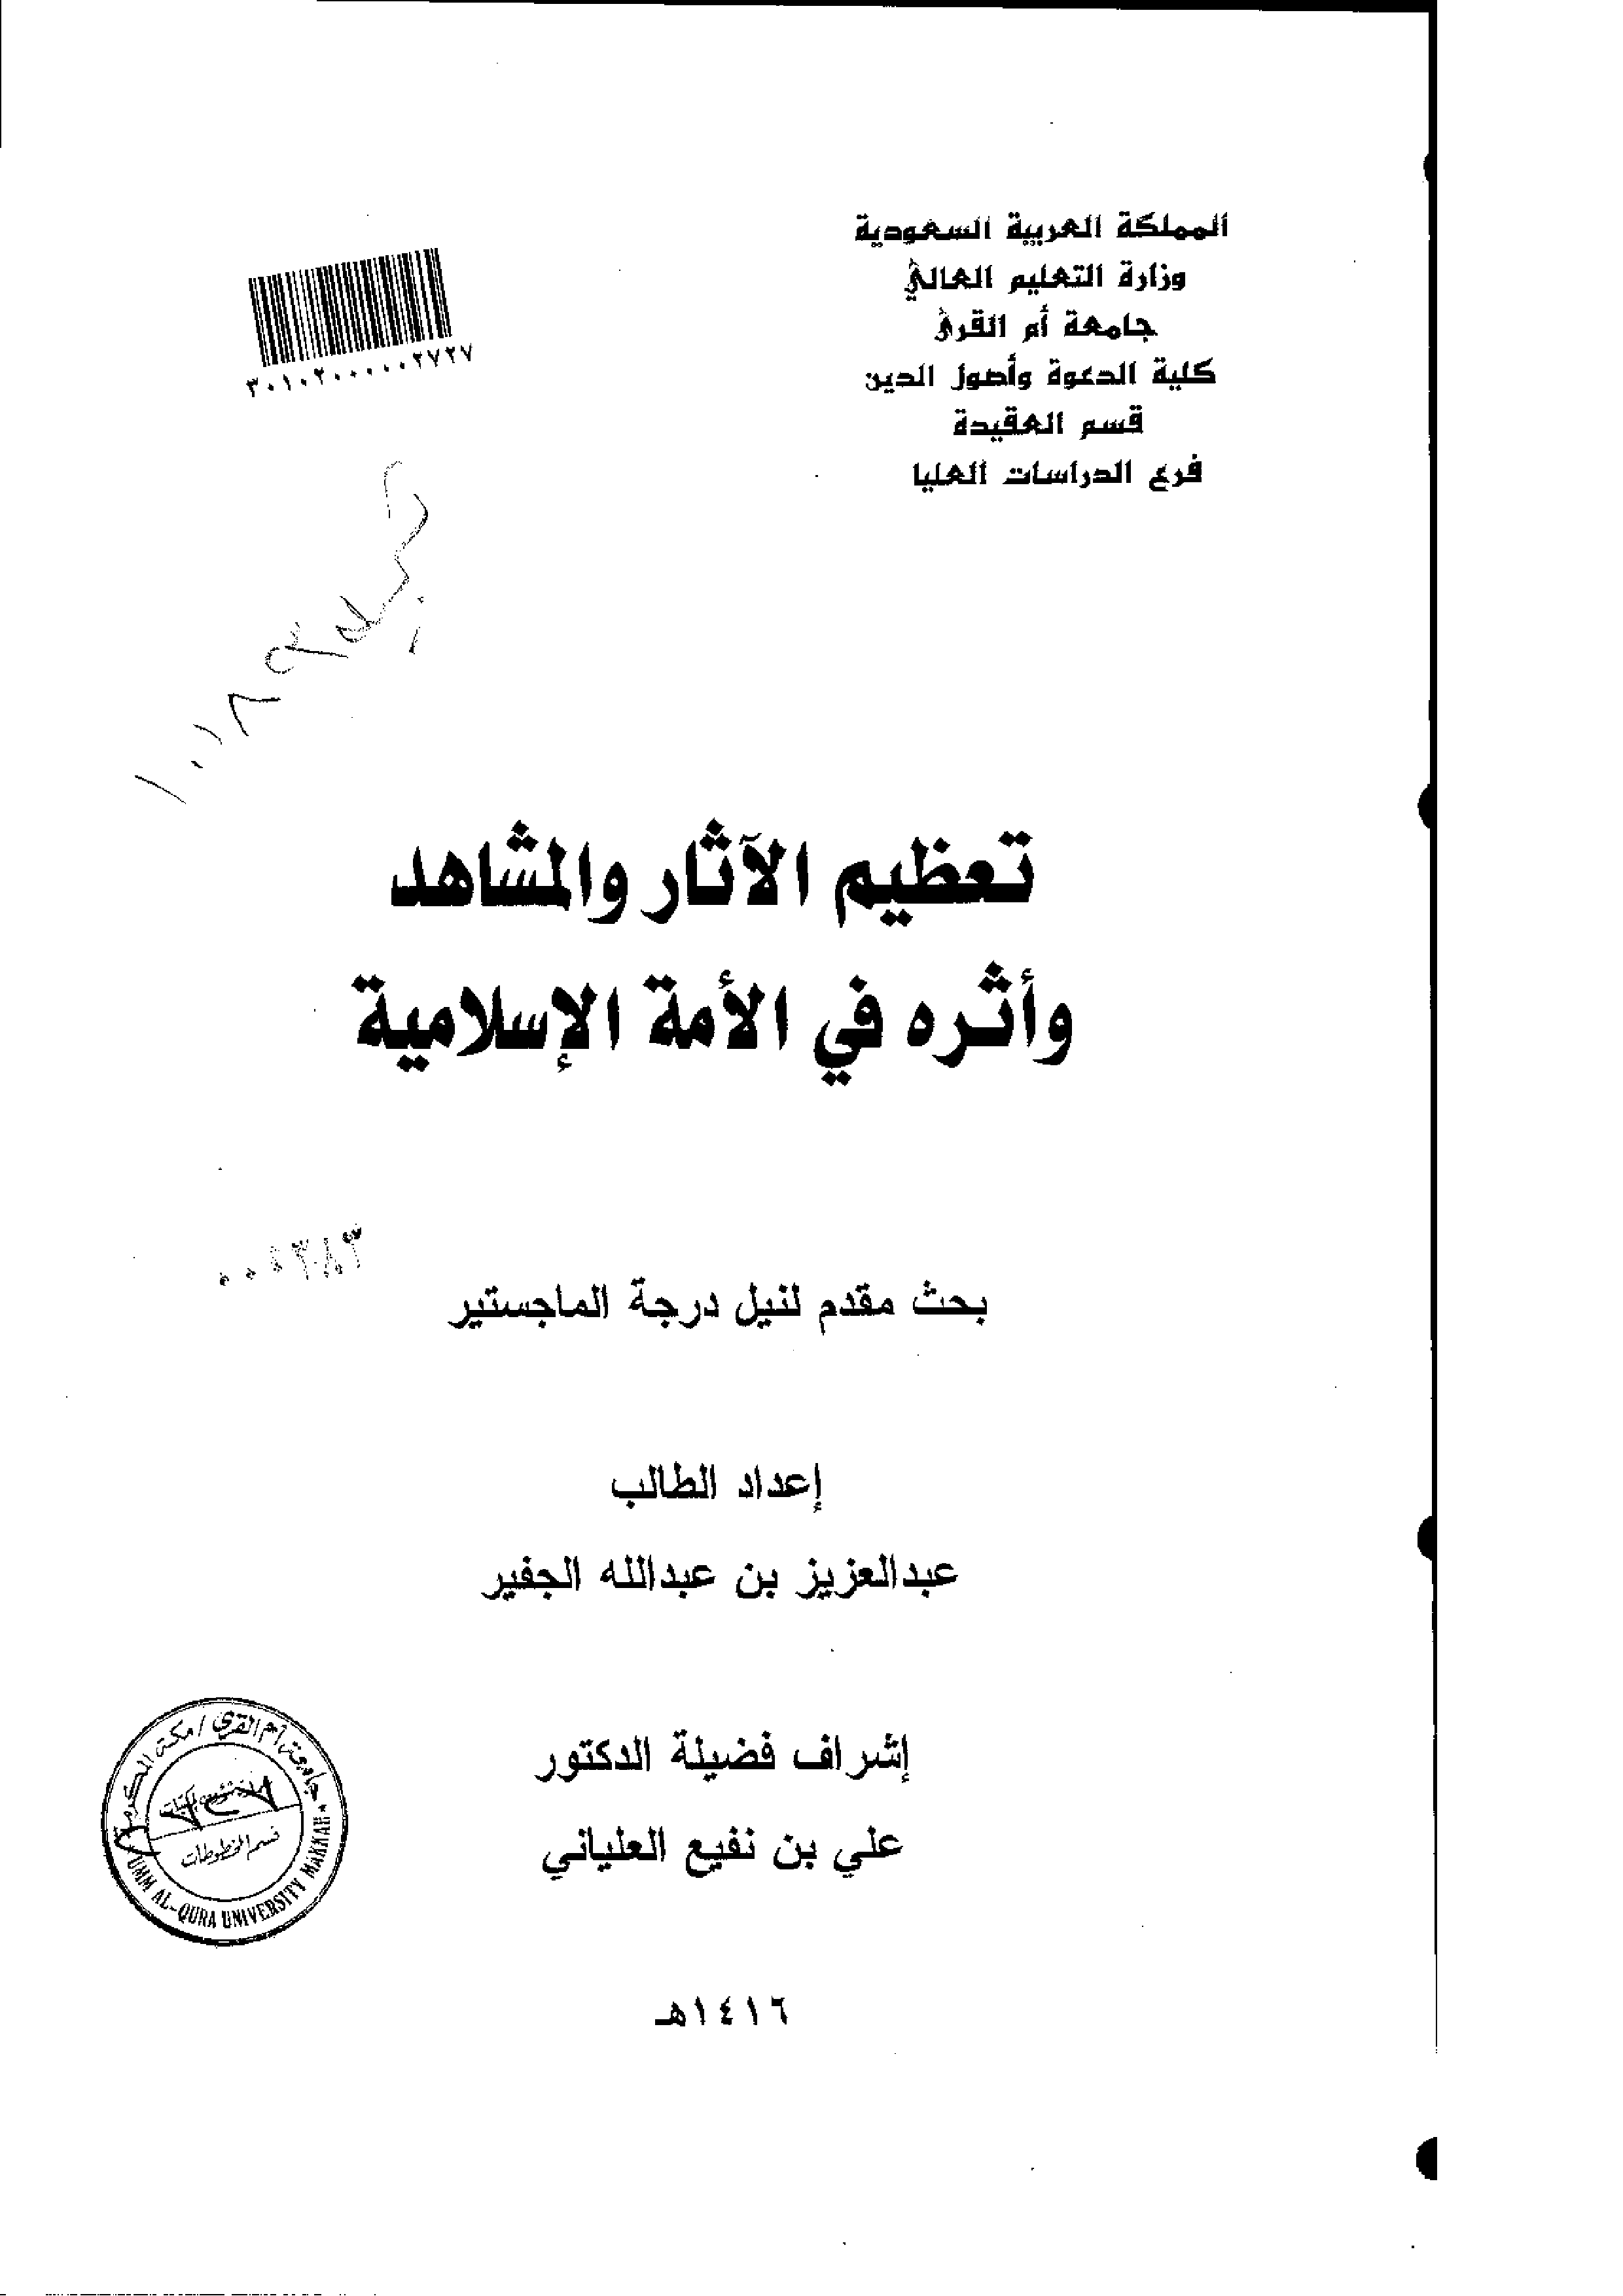 المملكة العربية السعودية
وزارة التعليم العالي
جامعة أم القرى
كلية الدعوة وأصول الدين
قسم العقيدة
فرع الدراسات العليا
٣٠١٠٢٠٠٠٠٠٢٧٢٧
تعظيم الآثار والمشاهد
وأثره في الأمة الإسلامية
بحث مقدم لنيل درجة الماجستير
إعداد الطالب
عبدالعزيز بن عبدالله الجفير
إشراف فضيلة الدكتور
علي بن نفيع العلياني
جامعة أم القرى / مكة المكرمة
قسم المخطوطات
UMM AL-QURA UNIVERSITY MAKKAH
١٤١٦هـ